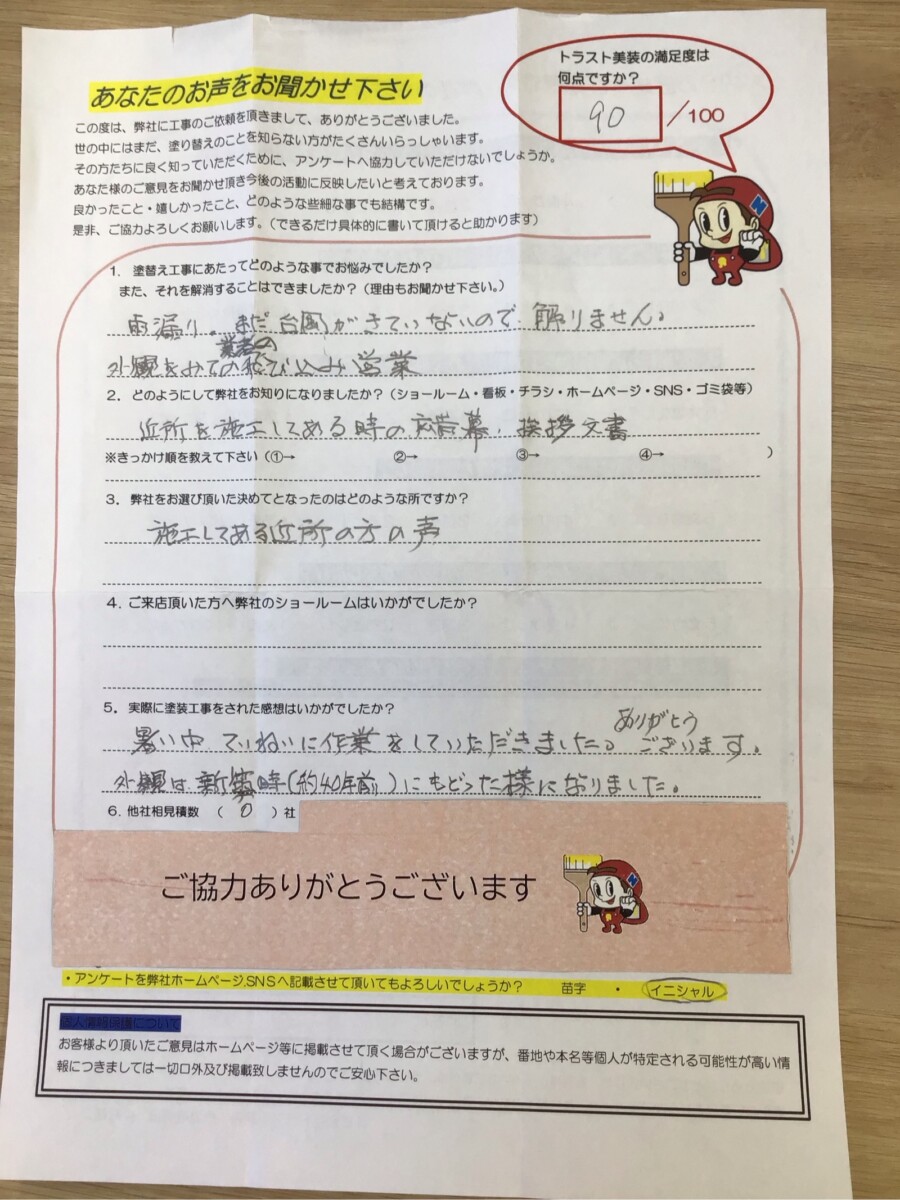 トラスト美装の満足度は
何点ですか？
90 /100
あなたのお声をお聞かせ下さい
この度は、弊社に工事のご依頼を頂きまして、ありがとうございました。
世の中にはまだ、塗り替えのことを知らない方がたくさんいらっしゃいます。
その方たちに良く知っていただくために、アンケートへ協力していただけないでしょうか。
あなた様のご意見をお聞かせ頂き今後の活動に反映したいと考えております。
良かったこと・嬉しかったこと、どのような些細な事でも結構です。
是非、ご協力よろしくお願いします。（できるだけ具体的に書いて頂けると助かります）
N
1. 塗替え工事にあたってどのような事でお悩みでしたか？
また、それを解消することはできましたか？（理由もお聞かせ下さい。）
雨漏り。まだ台風がきていないので、解りません。
業者の
外観をみての飛び込み営業
2. どのようにして弊社をお知りになりましたか？（ショールーム・看板・チラシ・ホームページ・SNS・ゴミ袋等）
近所を施工してある時の 幕、挨拶文書
※きっかけ順を教えて下さい（①→ ②→ ③→ ④→ ）
3. 弊社をお選び頂いた決めてとなったのはどのような所ですか？
施工してある近所の方の声
4. ご来店頂いた方へ弊社のショールームはいかがでしたか？
5. 実際に塗装工事をされた感想はいかがでしたか？
暑い中ていねいに作業をしていただきました。ありがとうございます。
外観は新築時(約40年前)にもどった様になりました。
6. 他社相見積数 （ 0 ）社
ご協力ありがとうございます
N
・アンケートを弊社ホームページ,SNSへ記載させて頂いてもよろしいでしょうか？ 苗字 ・ イニシャル
個人情報保護について
お客様より頂いたご意見はホームページ等に掲載させて頂く場合がございますが、番地や本名等個人が特定される可能性が高い情
報につきましては一切口外及び掲載致しませんのでご安心下さい。